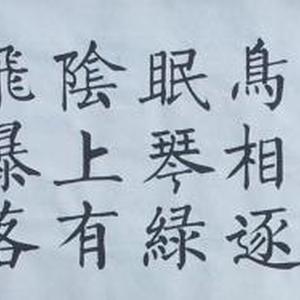 鳥相逐
眠琴綠
陰上有
飛瀑落